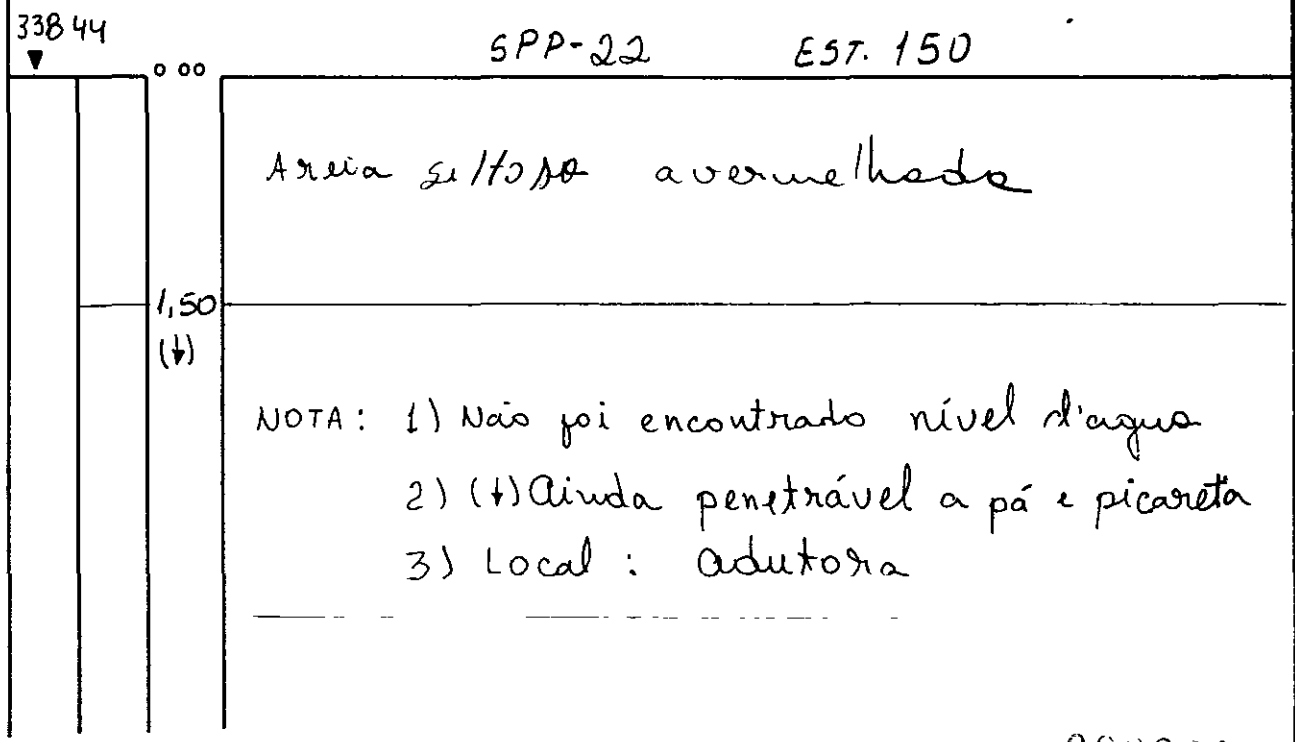 338 44
SPP-22 EST. 150
0 00
Areia siltosa avermelhada
1,50
(↓)
NOTA: 1) Não foi encontrado nível d'agua
2) (↓) Ainda penetrável a pá e picareta
3) Local: adutora